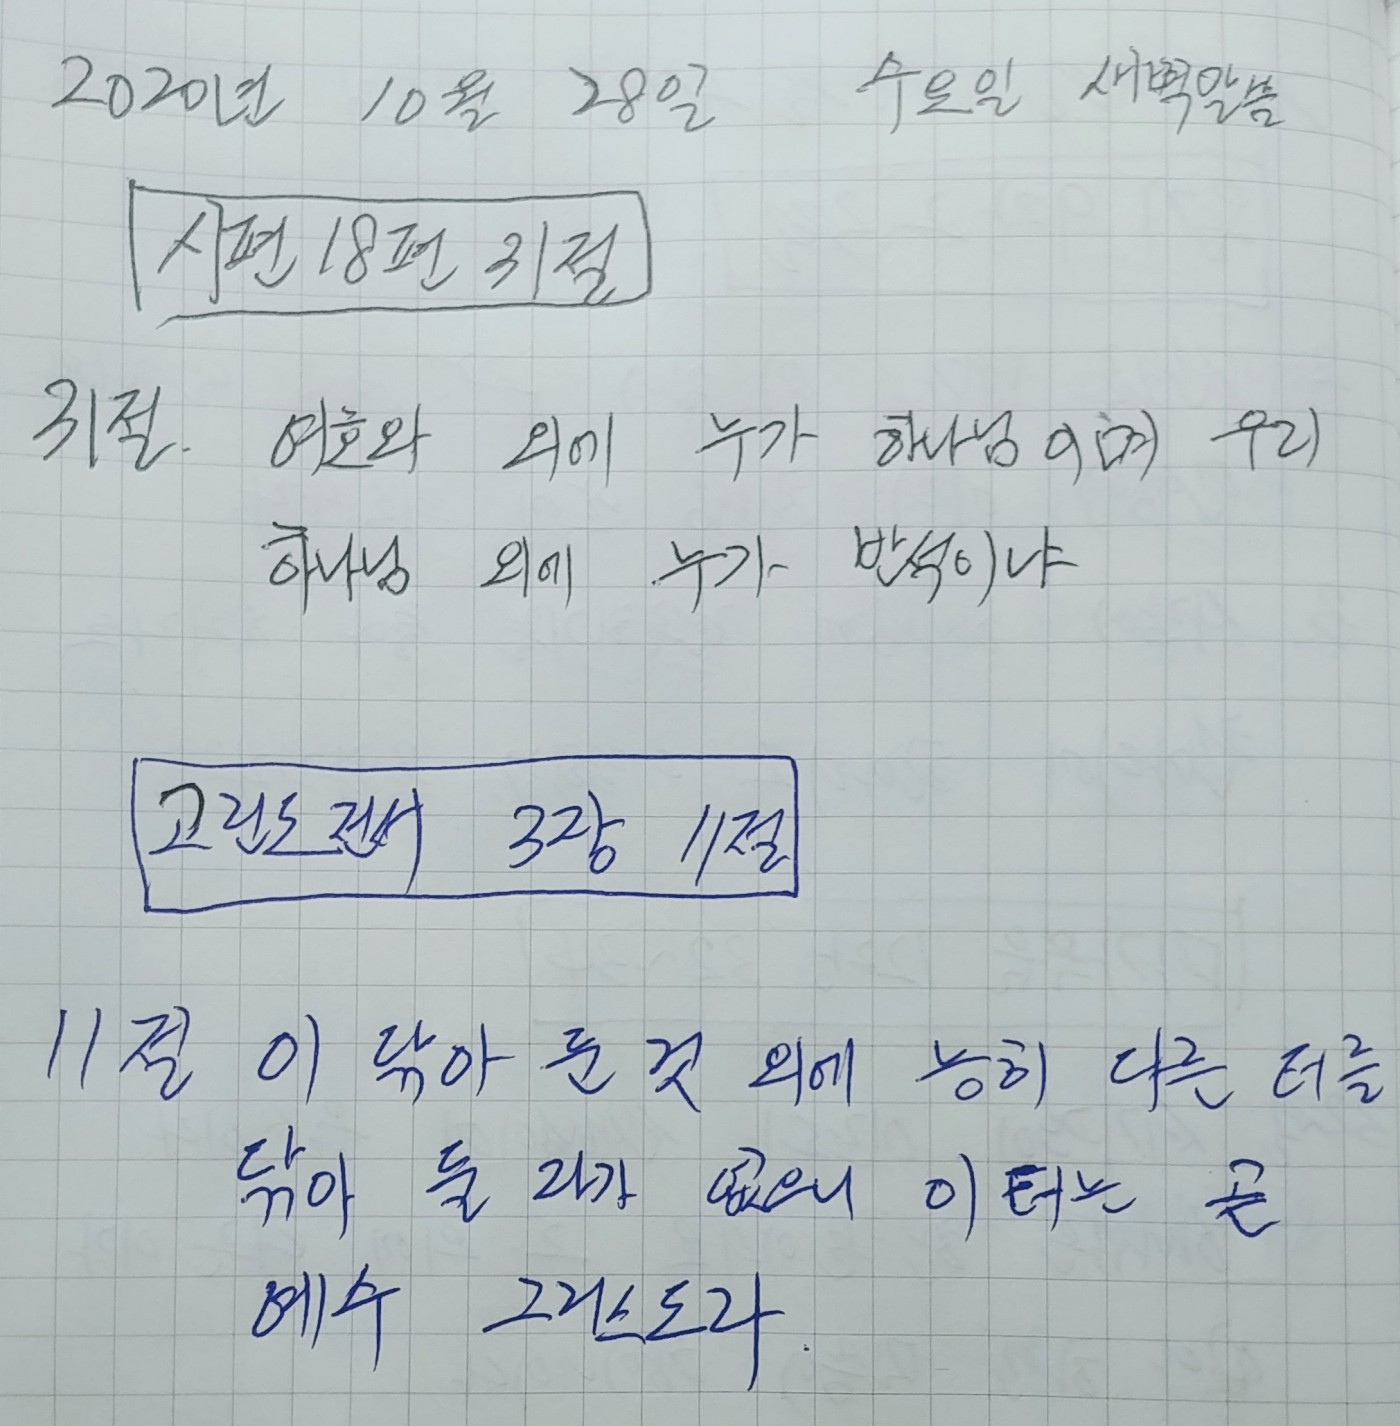 2020년 10월 28일 수요일 새벽말씀
시편 18편 31절
31절. 여호와 외에 누가 하나님이며 우리
하나님 외에 누가 반석이냐
고린도전서 3장 11절
11절 이 닦아 둔 것 외에 능히 다른 터를
닦아 둘 자가 없으니 이 터는 곧
예수 그리스도라.